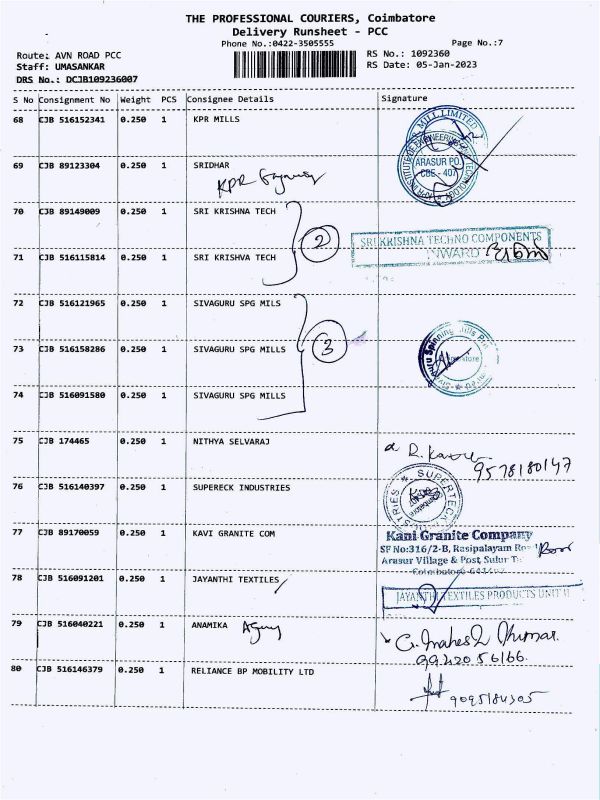 THE PROFESSIONAL COURIERS, Coimbatore
Delivery Runsheet - PCC
Phone No.:0422-3505555
Page No.:7
Route: AVN ROAD PCC
RS No.: 1092360
Staff: UMASANKAR
RS Date: 05-Jan-2023
DRS No.: DCJB109236007
S No Consignment No Weight PCS Consignee Details Signature
68 CJB 516152341 0.250 1 KPR MILLS
MILL LIMITED
ARASUR PO.
CBE - 407
69 CJB 89123304 0.250 1 SRIDHAR
KPR
70 CJB 89149009 0.250 1 SRI KRISHNA TECH
2
SRI KRISHNA TECHNO COMPONENTS
INWARD
71 CJB 516115814 0.250 1 SRI KRISHVA TECH
72 CJB 516121965 0.250 1 SIVAGURU SPG MILS
3
73 CJB 516158286 0.250 1 SIVAGURU SPG MILLS
74 CJB 516091580 0.250 1 SIVAGURU SPG MILLS
75 CJB 174465 0.250 1 NITHYA SELVARAJ
9578180147
76 CJB 516140397 0.250 1 SUPERECK INDUSTRIES
SUPERTECK
77 CJB 89170059 0.250 1 KAVI GRANITE COM
Kani Granite Company
SF No:316/2-B, Rasipalayam
Arasur Village & Post, Sulur
78 CJB 516091201 0.250 1 JAYANTHI TEXTILES
JAYANTHI TEXTILES PRODUCTS UNIT II
79 CJB 516040221 0.250 1 ANAMIKA
G. Mahesh Kumar.
99420 56166.
80 CJB 516146379 0.250 1 RELIANCE BP MOBILITY LTD
9095184305